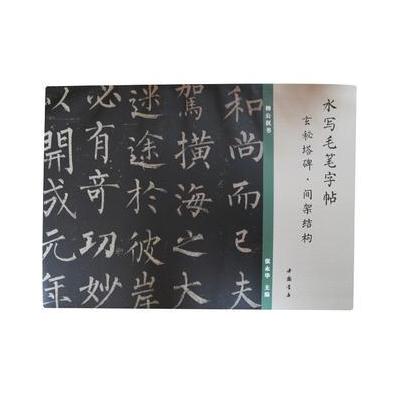 水写毛笔字帖
玄秘塔碑·间架结构
中国书店
柳公权书
张永华 主编
和尚而已夫
駕横海之大
迷途於彼岸
必有奇功妙
以開成元年